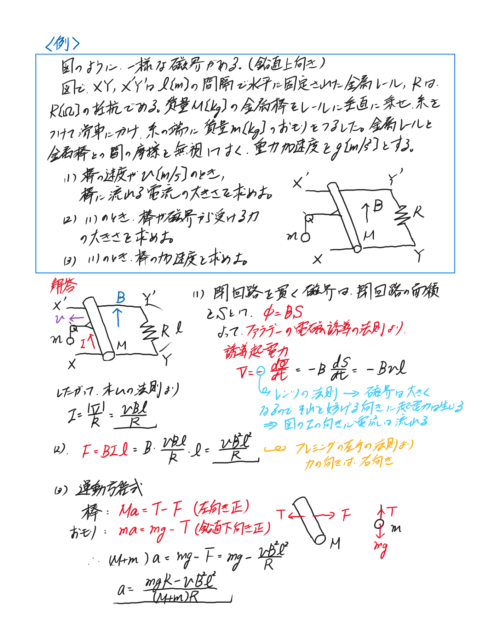 〈例〉
図のように、一様な磁界がある。(鉛直上向き)
図で、XY, X'Y'はl[m]の間隔で水平に固定された金属レール, Rは
R[Ω]の抵抗である。質量M[kg]の金属棒をレールに垂直に乗せ、糸を
つけて滑車にかけ、糸の端に質量m[kg]のおもりをつるした。金属レールと
金属棒との間の摩擦を無視して、重力加速度をg[m/s²]とする。
(1) 棒の速度がv[m/s]のとき,
棒に流れる電流の大きさを求めよ。
(2) (1)のとき, 棒が磁界から受ける力
の大きさを求めよ。
(3) (1)のとき, 棒の加速度を求めよ。
X' Y'
B
R
m
M
X Y
解答
X' B Y'
v
R l
m
I
M
X Y
(1) 閉回路を貫く磁界は、閉回路の面積
をSとして, Φ=BS
よって, ファラデーの電磁誘導の法則より,
誘導起電力
V=-dΦ/dt = -B dS/dt = -Bvl
レンツの法則 → 磁界は大きく
なるので それを妨げる向きに起電力は生じる
⇒ 図のIの向きに電流は流れる
したがって, オームの法則より
I=|V|/R = vBl/R
(2). F=BIl=B・vBl/R・l = vB²l²/R
フレミングの左手の法則より
力の向きは, 右向き
(3) 運動方程式
棒: Ma=T-F (左向き正)
おもり: ma=mg-T (鉛直下向き正)
∴ (M+m)a=mg-F=mg-vB²l²/R
a=mgR-vB²l²/(M+m)R
T F
M
T
m
mg